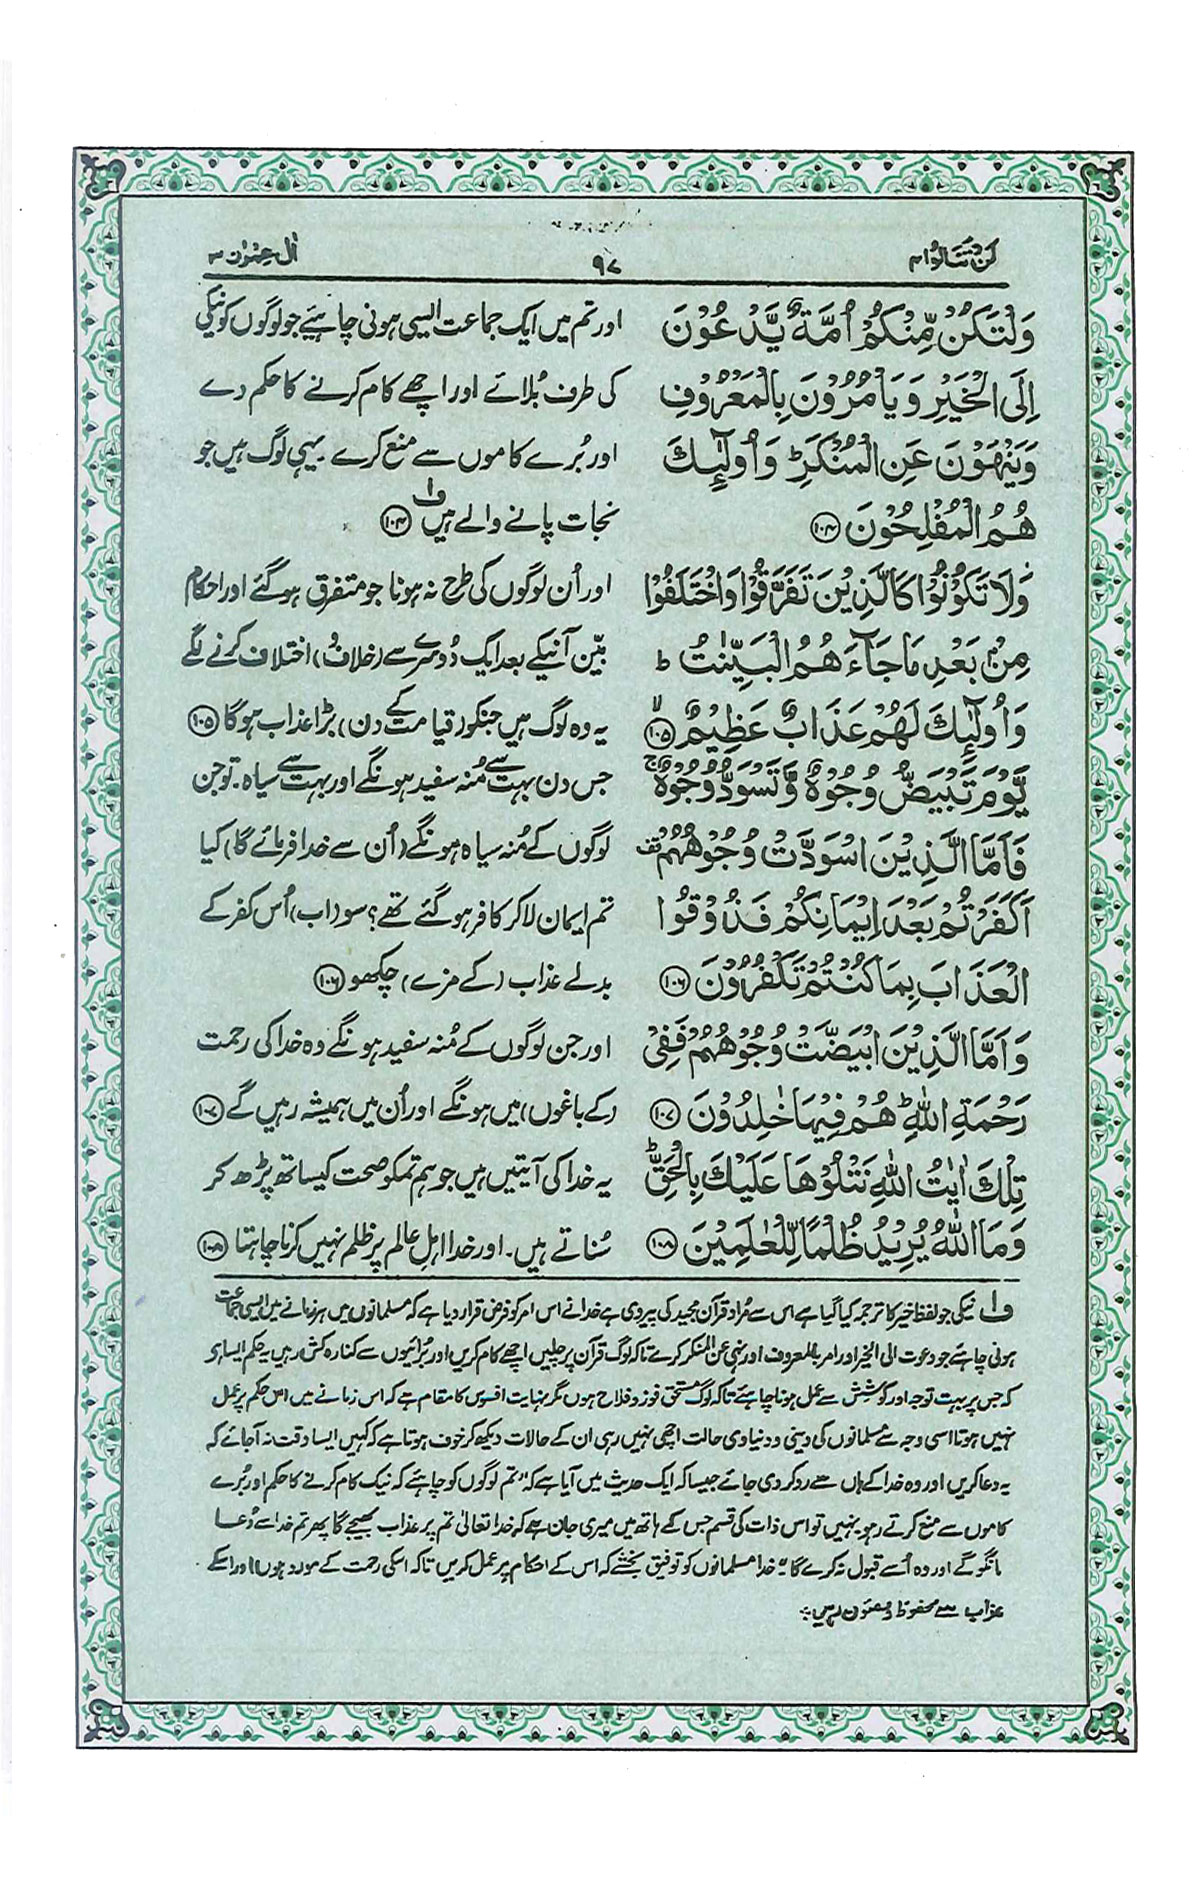 لَنْ تَنَالُوا ۴
۹۷
اٰل عِمْرٰن ۳
وَلْتَكُنْ مِّنْكُمْ اُمَّةٌ يَّدْعُوْنَ
اِلَى الْخَيْرِ وَيَاْمُرُوْنَ بِالْمَعْرُوْفِ
وَيَنْهَوْنَ عَنِ الْمُنْكَرِ ؕ وَاُولٰٓئِكَ
هُمُ الْمُفْلِحُوْنَ ﴿۱۰۴﴾
وَلَا تَكُوْنُوْا كَالَّذِيْنَ تَفَرَّقُوْا وَاخْتَلَفُوْا
مِنْۢ بَعْدِ مَا جَآءَهُمُ الْبَيِّنٰتُ ؕ
وَاُولٰٓئِكَ لَهُمْ عَذَابٌ عَظِيْمٌ ﴿۱۰۵﴾ ۙ
يَّوْمَ تَبْيَضُّ وُجُوْهٌ وَّتَسْوَدُّ وُجُوْهٌ ۚ
فَاَمَّا الَّذِيْنَ اسْوَدَّتْ وُجُوْهُهُمْ قف
اَكَفَرْتُمْ بَعْدَ اِيْمَانِكُمْ فَذُوْقُوا
الْعَذَابَ بِمَا كُنْتُمْ تَكْفُرُوْنَ ﴿۱۰۶﴾
وَاَمَّا الَّذِيْنَ ابْيَضَّتْ وُجُوْهُهُمْ فَفِيْ
رَحْمَةِ اللّٰهِ ؕ هُمْ فِيْهَا خٰلِدُوْنَ ﴿۱۰۷﴾
تِلْكَ اٰيٰتُ اللّٰهِ نَتْلُوْهَا عَلَيْكَ بِالْحَقِّ ؕ
وَمَا اللّٰهُ يُرِيْدُ ظُلْمًا لِّلْعٰلَمِيْنَ ﴿۱۰۸﴾
اور تم میں ایک جماعت ایسی ہونی چاہئیے جو لوگوں کو نیکی
کی طرف بُلائے اور اچھے کام کرنے کا حکم دے
اور بُرے کاموں سے منع کرے یہی لوگ ہیں جو
نجات پانے والے ہیں وا ﴿۱۰۴﴾
اور اُن لوگوں کی طرح نہ ہونا جو متفرق ہو گئے اور احکام
بیّن آنیکے بعد ایک دُوسرے سے (خلاف و) اختلاف کرنے لگے
یہ وہ لوگ ہیں جنکو (قیامت کے دن) بڑا عذاب ہوگا ﴿۱۰۵﴾
جس دن بہت سے مُنہ سفید ہونگے اور بہت سے سیاہ۔ تو جن
لوگوں کے مُنہ سیاہ ہونگے (اُن سے خدا فرمائے گا) کیا
تم ایمان لا کر کافر ہو گئے تھے؟ سو (اب) اُس کفر کے
بدلے عذاب (کے مزے) چکھو ﴿۱۰۶﴾
اور جن لوگوں کے مُنہ سفید ہونگے وہ خدا کی رحمت
(کے باغوں) میں ہونگے اور اُن میں ہمیشہ رہیں گے ﴿۱۰۷﴾
یہ خدا کی آیتیں ہیں جو ہم تمکو صحت کیساتھ پڑھ کر
سُناتے ہیں۔ اور خدا اہلِ عالم پر ظلم نہیں کرنا چاہتا ﴿۱۰۸﴾
وا نیکی جو لفظ خیر کا ترجمہ کیا گیا ہے اس سے مُراد قرآن مجید کی پیروی ہے خدا نے اس امر کو فرض قرار دیا ہے کہ مسلمانوں میں ہر زمانے میں ایسی جماعت
ہونی چاہئے جو دعوت الی الخیر اور امر بالمعروف اور نہی عن المنکر کرے تاکہ لوگ قرآن پر چلیں اچھے کام کریں اور بُرائیوں سے کنارہ کش رہیں یہ حکم ایسا ہی
کہ جس پر بہت توجہ اور کوشش سے عمل ہونا چاہئے تاکہ لوگ مستحق فوز و فلاح ہوں مگر نہایت افسوس کا مقام ہے کہ اس زمانے میں اس حکم پر عمل
نہیں ہوتا اسی وجہ سے مسلمانوں کی دینی و دنیاوی حالت اچھی نہیں رہی ان کے حالات دیکھ کر خوف ہوتا ہے کہ کہیں ایسا وقت نہ آجائے کہ
یہ دعا کریں اور وہ خدا کے ہاں سے رد کر دی جائے جیسا کہ ایک حدیث میں آیا ہے کہ "تم لوگوں کو چاہئے کہ نیک کام کرنے کا حکم اور بُرے
کاموں سے منع کرتے رہو۔ نہیں تو اس ذات کی قسم جس کے ہاتھ میں میری جان ہے کہ خدا تعالیٰ تم پر عذاب بھیجے گا پھر تم خدا سے دُعا
مانگو گے اور وہ اُسے قبول نہ کرے گا" خدا مسلمانوں کو توفیق بخشے کہ اس کے احکام پر عمل کریں تاکہ اسکی رحمت کے مورد ہوں اور اسکے
عذاب سے محفوظ و مصئون رہیں